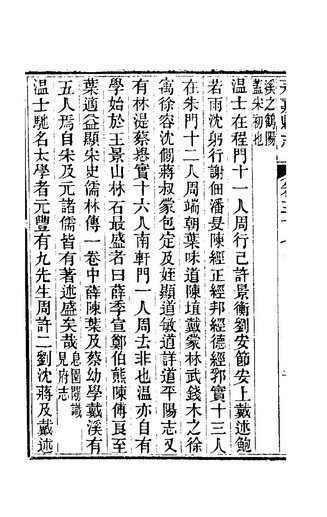 溪之鶴陽
蓋宋初也
温士在程門十一人周行己許景衡劉安節安上戴述鮑
若雨沈躬行謝佃潘旻陳經正經邦經德經郛實十三人
在朱門十二人周端朝葉味道陳埴戴蒙林武錢木之徐
寓徐容沈僩蔣叔蒙包定及姪顯道敏道詳道平陽志又
有林湜蔡㦛實十六人南軒門一人周去非也温亦自有
學始於王景山林石最盛者曰薛季宣鄭伯熊陳傅良至
葉適益顯宋史儒林傳一卷中薛陳葉及蔡幼學戴溪有
五人焉自宋及元諸儒皆有著述盛矣哉息園閒識
見府志
温士馳名太學者元豐有九先生周許二劉沈蔣及戴述